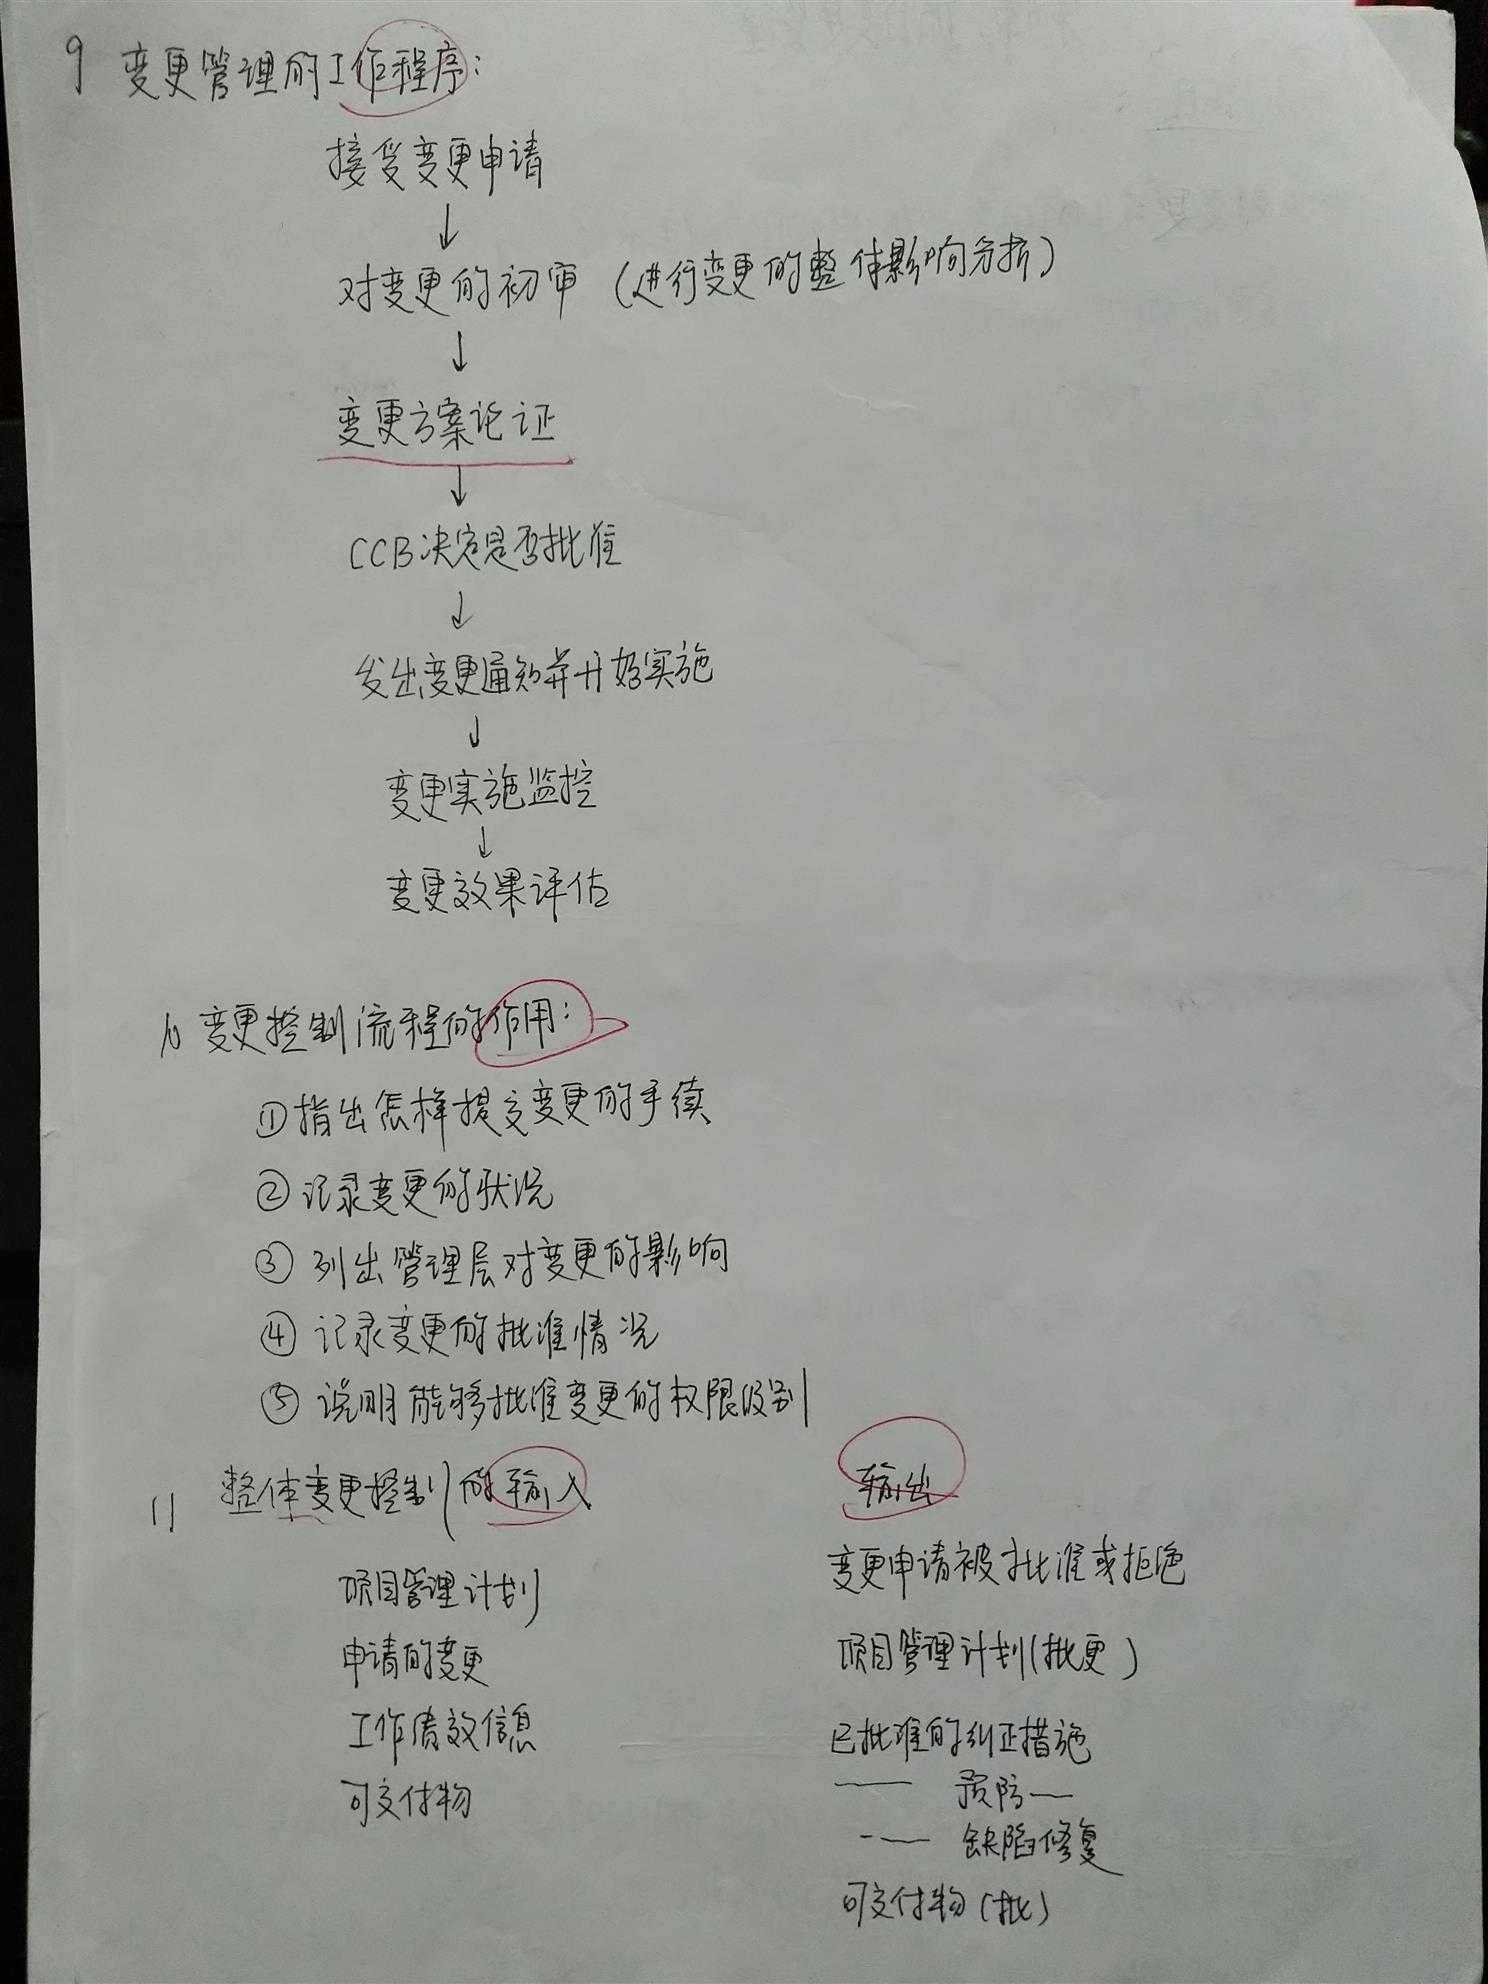 9 变更管理的工作程序:
接受变更申请
↓
对变更的初审 (进行变更的整体影响分析)
↓
变更方案论证
↓
CCB决定是否批准
↓
发出变更通知并开始实施
↓
变更实施监控
↓
变更效果评估
10 变更控制流程的作用:
①指出怎样提交变更的手续
②记录变更的状况
③列出管理层对变更的影响
④记录变更的批准情况
⑤说明能够批准变更的权限级别
11 整体变更控制的输入
项目管理计划
申请的变更
工作绩效信息
可交付物
输出
变更申请被批准或拒绝
项目管理计划(批更)
已批准的纠正措施
—— 预防—
—— 缺陷修复
可交付物(批)